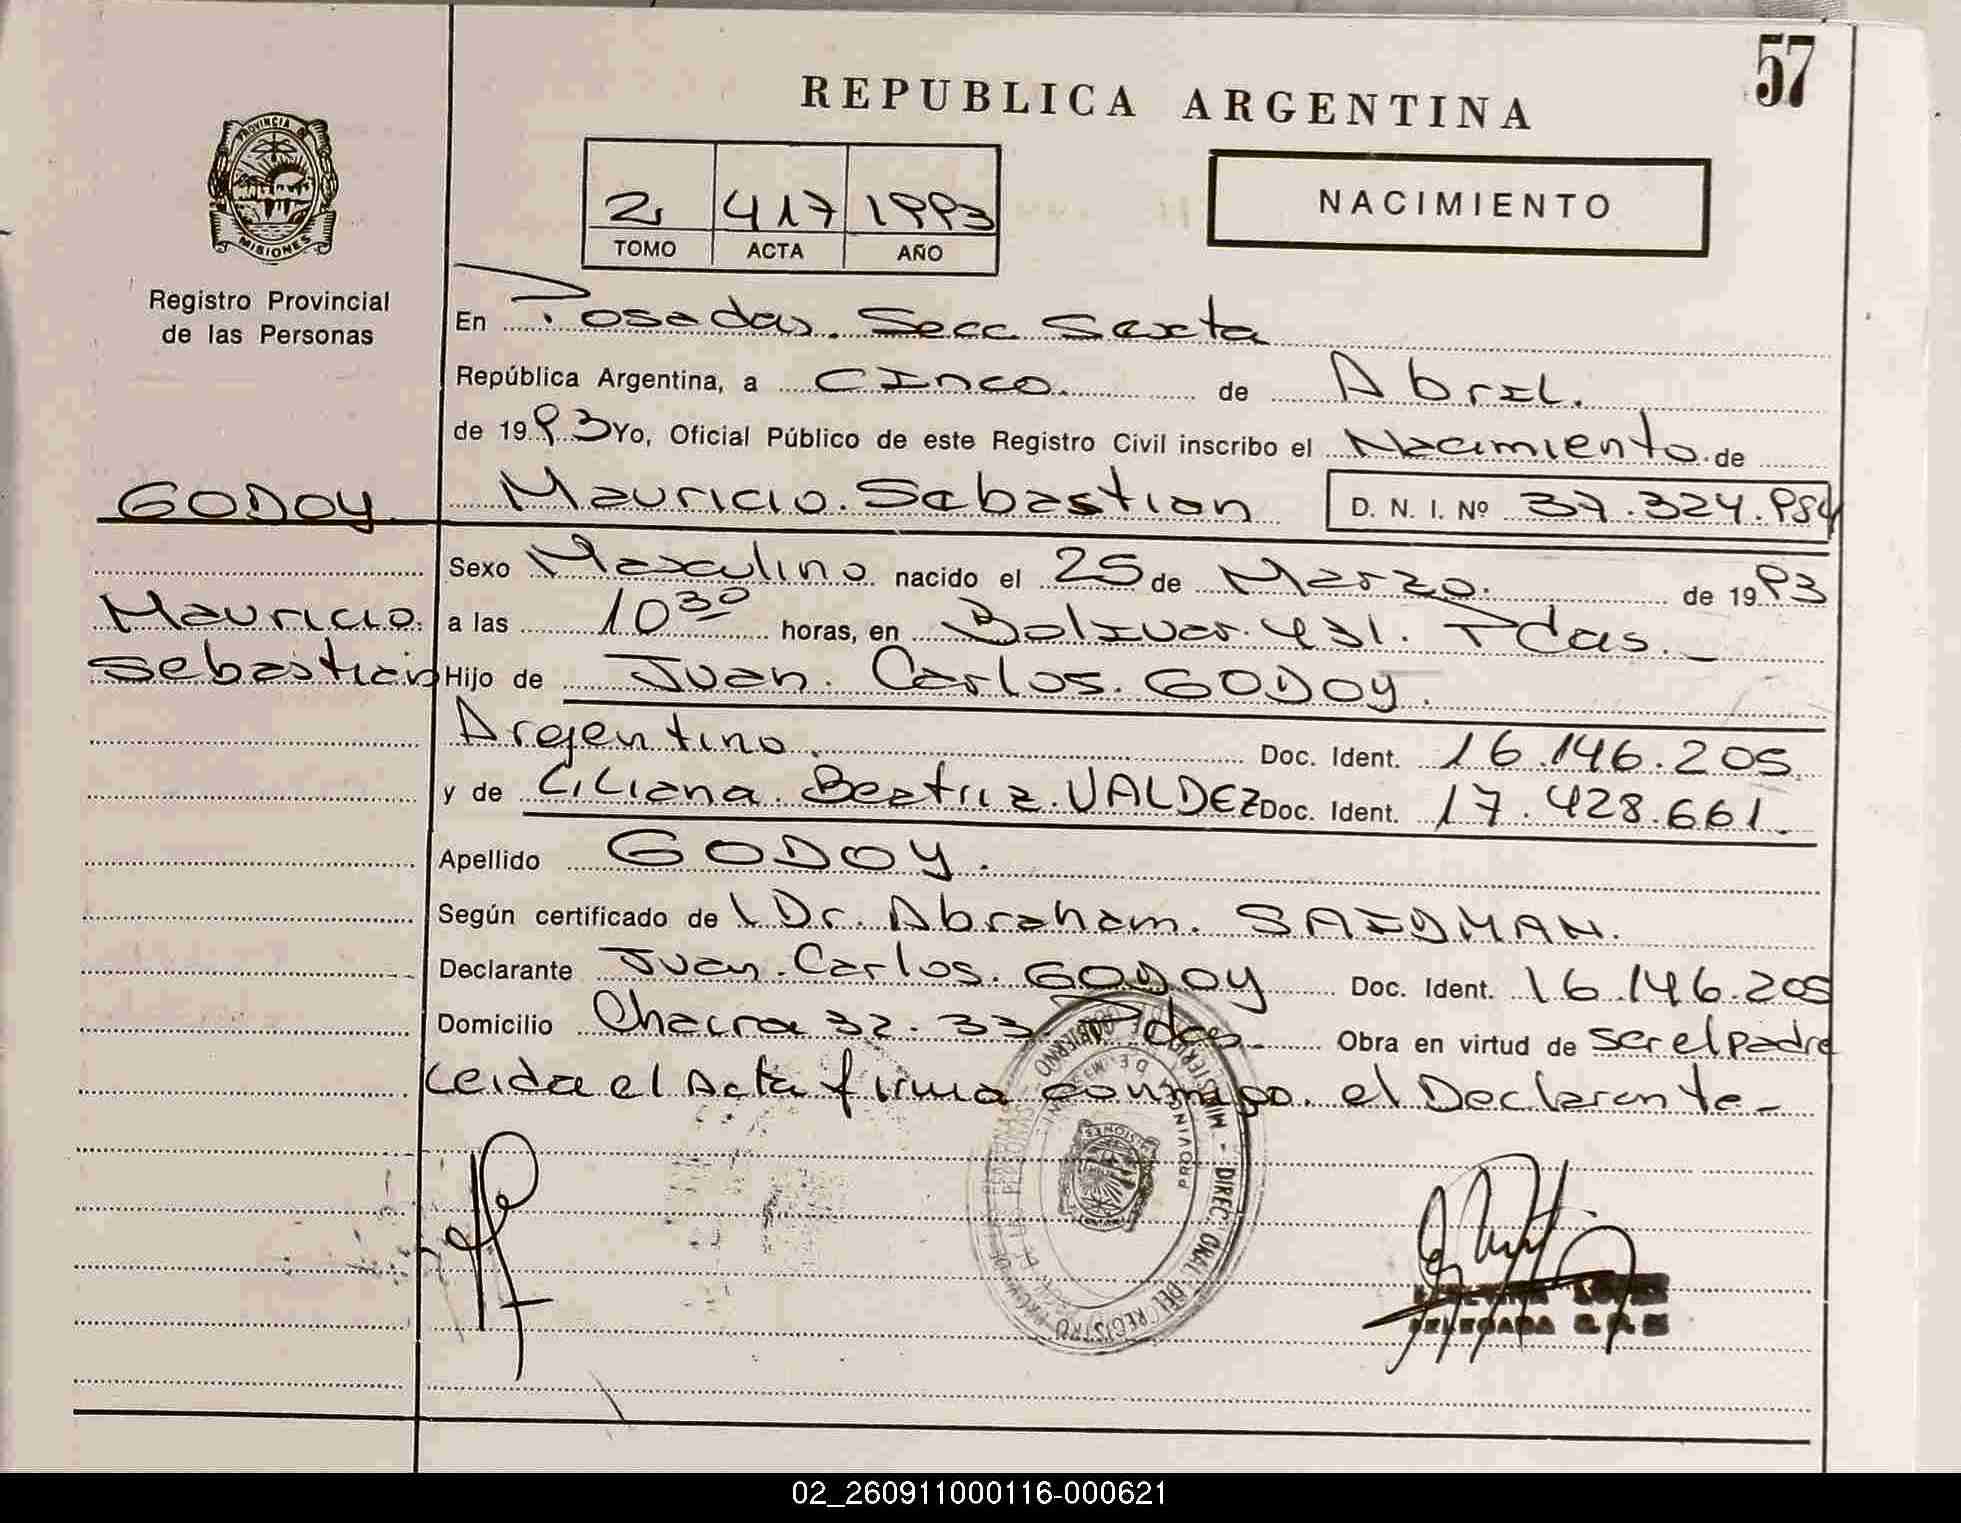 57
REPUBLICA ARGENTINA
PROVINCIA DE
MISIONES
Registro Provincial
de las Personas
2 417 1993
TOMO ACTA AÑO
NACIMIENTO
En Posadas. Secc Sexta
República Argentina, a Cinco. de Abril.
de 1993 Yo, Oficial Público de este Registro Civil inscribo el Nacimiento de
GODOY Mauricio. Sebastian D. N. I. Nº 37.324.984
Sexo Masculino nacido el 25 de Marzo. de 1993
Mauricio. a las 10 30 horas, en Bolivar. 431. Pdas.
Sebastian Hijo de Juan. Carlos. GODOY.
Argentino. Doc. Ident. 16.146.205
y de Liliana. Beatriz. VALDEZ Doc. Ident. 17.428.661.
Apellido GODOY.
Según certificado de Dr. Abraham. SAIDMAN.
Declarante Juan. Carlos. GODOY Doc. Ident. 16.146.205
Domicilio Chacra 32-33. Pdas. Obra en virtud de ser el padre
Leida el Acta firma conmigo. el Declarante-
MINISTERIO DE GOBIERNO - DIREC. GRAL. DEL REGISTRO
PROVINCIA DE MISIONES
DELEGADA
02_260911000116-000621